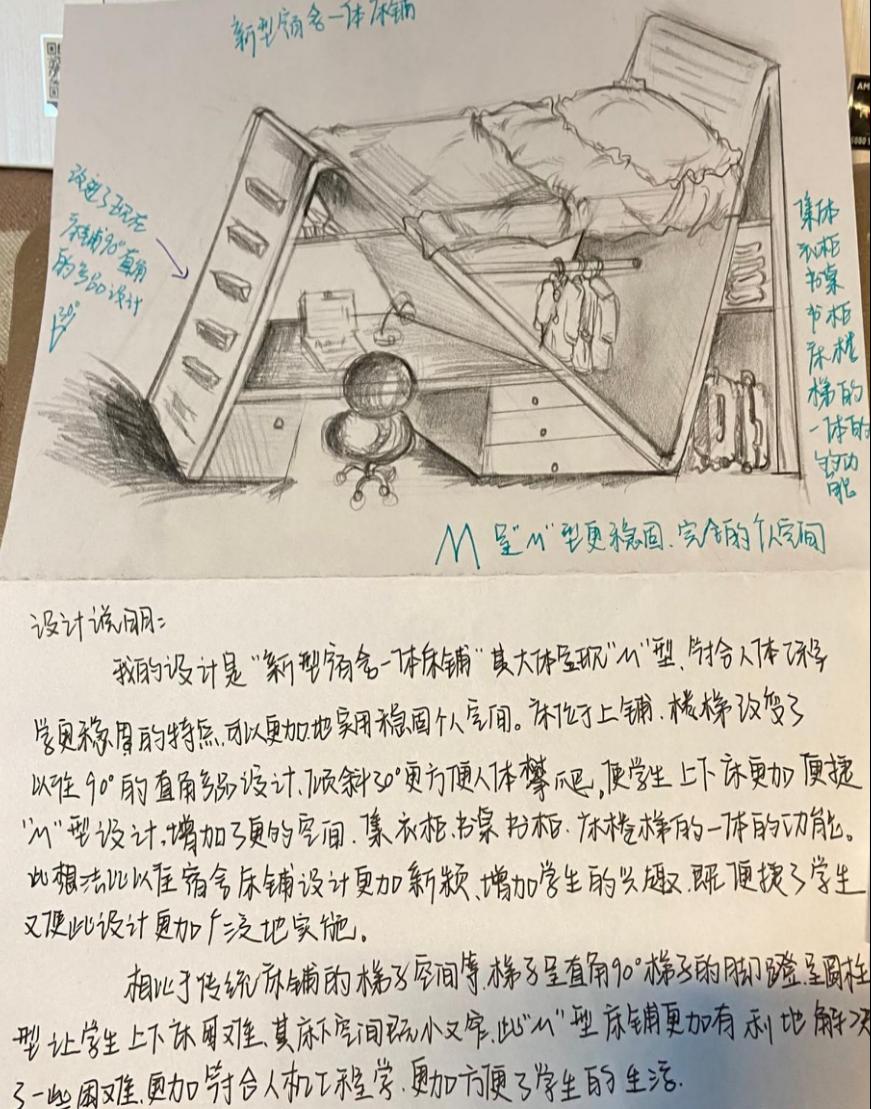 新型宿舍一体床铺
改进了现在
床铺90°直角
的产品设计
30°
集体
衣柜
书桌
书柜
床楼
梯的
一体的
的功
能
M 呈"M"型更稳固、完全的个人空间
设计说明:
我的设计是"新型宿舍一体床铺"其大体呈现"M"型、符合人体工程
学更稳固的特点,可以更加地实用稳固个人空间。床位于上铺、楼梯改变了
以往90°的直角产品设计、倾斜30°更方便人体攀爬,使学生上下床更加便捷
"M"型设计,增加了更的空间、集衣柜、书桌书柜、床楼梯的一体的功能。
此想法比以往宿舍床铺设计更加新颖、增加学生的兴趣、既便捷了学生
又使此设计更加广泛地实施。
相比于传统床铺的梯子空间等、梯子呈直角90°梯子的脚蹬呈圆柱
型让学生上下床困难、其床下空间既小又窄、此"M"型床铺更加有利地解决
了一些困难、更加符合人机工程学、更加方便了学生的生活.